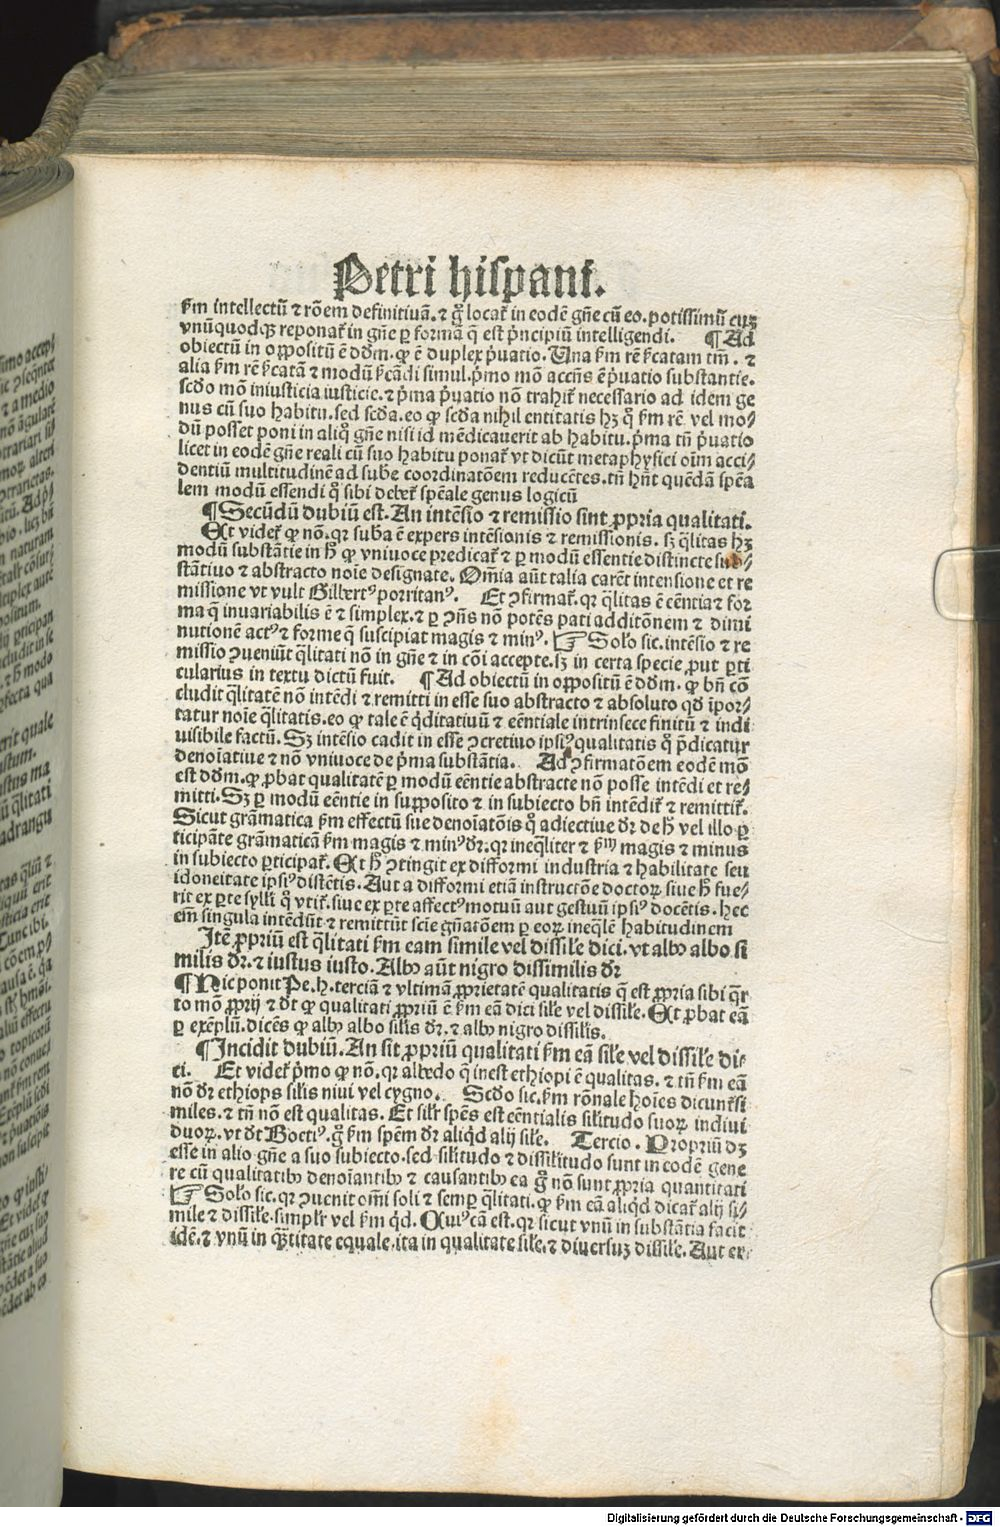 Petri hispani.
ẜm intellectū ⁊ rōem definitiuā. ⁊ g̊ locat᷑ in eodē gñe cū eo. potissimū cuȝ
vnūquodqꝫ reponat᷑ in gñe ꝑ formā q̄ est p̄ncipiū intelligendi. ¶ Ad
obiectū in oꝓpositū ē dd̄m. ꝙ ē duplex p̄uatio. Una ẜm rē ẜcatam tm̄. ⁊
alia ẜm rē ẜcatā ⁊ modū ẜcādi simul. p̄mo mō accñs ē p̄uatio substantie.
scd̄o mō iniusticia iusticie. ⁊ p̄ma p̄uatio nō trahit᷑ necessario ad idem ge
nus cū suo habitu. sed scd̄a. eo ꝙ scd̄a nihil entitatis hꝫ q̊ ẜm rē vel mo⸗
dū posset poni in aliq̊ gñe nisi id mēdicauerit ab habitu. p̄ma tñ p̄uatio
licet in eodē gñe reali cū suo habitu ponat᷑ vt dicūt metaphysici oīm acci⸗
dentiū multitudinē ad sube coordinatōem reducētes. tñ hñt quēdā spēa
lem modū essendi q̊ sibi debet᷑ spēale genus logicū
¶ Secūdū dubiū est. An intēsio ⁊ remissio sint ꝓpria qualitati.
Et videt᷑ ꝙ nō. qr suba ē expers intēsionis ⁊ remissionis. sꝫ q̄litas hꝫ
modū substātie in h̊ ꝙ vniuoce predicat᷑ ⁊ ꝑ modū essentie distincte sub⸗
stātiuo ⁊ abstracto noīe designate. Omia aūt talia carēt intensione et re
missione vt vult Gilbertꝰ porritanꝰ. Et ꝯfirmat᷑. qr q̄litas ē eēntia ⁊ for
ma q̄ inuariabilis ē ⁊ simplex. ⁊ ꝑ ꝯñs nō potēs pati additōnem ⁊ dimi
nutionē actꝰ ⁊ forme q̄ suscipiat magis ⁊ minꝰ. ☞ Solo sic. intēsio ⁊ re
missio ꝯueniūt q̄litati nō in gñe ⁊ in cōi accepte. sꝫ in certa specie ꝓut ꝑti
cularius in textu dictū fuit. ¶ Ad obiectū in oꝓpositū ē dd̄m. ꝙ bñ cō
cludit q̄litatē nō intēdi ⁊ remitti in esse suo abstracto ⁊ absoluto qd̄ īpor⸗
tatur noīe q̄litatis. eo ꝙ tale ē q̇ditatiuū ⁊ eēntiale intrinsece finitū ⁊ indi
uisibile factū. Sꝫ intēsio cadit in esse ꝯcretiuo ipsiꝰ qualitatis q̊ p̄dicatur
denoīatiue ⁊ nō vniuoce de p̄ma substātia. Ad ꝯfirmatōem eodē mō
est dd̄m. ꝙ ꝓbat qualitatē ꝑ modū eēntie abstracte nō posse intēdi et re⸗
mitti. Sꝫ ꝑ modū eēntie in suꝓposito ⁊ in subiecto bñ intēdit᷑ ⁊ remittit᷑.
Sicut grāmatica ẜm effectū sue denoīatōis q̊ adiectiue dr̄ de h̊ vel illo ꝑ
ticipāte grāmaticā ẜm magis ⁊ minꝰ dr̄. qr ineq̄liter ⁊ ẜm magis ⁊ minus
in subiecto ꝑticipat᷑. Et h̊ ꝯtingit ex difformi industria ⁊ habilitate seu
idoneitate ipsiꝰ discētis. Aut a difformi etiā instructōe doctoꝝ siue h̊ fue⸗
rit ex ꝑte sylli q̊ vtit᷑. siue ex ꝑte affectꝰ motuū aut gestuū ipsiꝰ docētis. hec
em̄ singula intēdūt ⁊ remittūt scīe gñatōem ꝑ eoꝝ ineq̄lē habitudinem
Itē ꝓpriū est q̄litati ẜm eam simile vel dissile dici. vt albꝰ albo si
milis dr̄. ⁊ iustus iusto. Albꝰ aūt nigro dissimilis dr̄
¶ Hic ponit Pe. h. terciā ⁊ vltimā ꝓprietatē qualitatis q̄ est ꝓpria sibi q̄r
to mō ꝓprij ⁊ dt ꝙ qualitati ꝓpriū ē ẜm eā dici sile vel dissile. Et ꝓbat eā
ꝑ exēplū. dicēs ꝙ albꝰ albo silis dr̄. ⁊ albꝰ nigro dissilis.
¶ Incidit dubiū. An sit ꝓpriū qualitati ẜm eā sile vel dissile di⸗
ci. Et videt᷑ p̄mo ꝙ nō. qr albedo q̄ inest ethiopi ē qualitas. ⁊ tñ ẜm eā
nō dr̄ ethiops silis niui vel cygno. Scd̄o sic. ẜm rōnale hoīes dicunt᷑ si
miles. ⁊ tñ nō est qualitas. Et silr spēs est eēntialis silitudo suoꝝ indiui
duoꝝ. vt dt Boetiꝰ. g̊ ẜm spēm dr̄ aliqd alij sile. Tercio. Propriū dꝫ
esse in alio gñe a suo subiecto. sed silitudo ⁊ dissilitudo sunt in eodē gene
re cū qualitatibꝰ denoīantibꝰ ⁊ causantibꝰ ea g̊ nō sunt ꝓpria quantitati
☞ Solo sic. qr ꝯuenit omī soli ⁊ semꝑ q̄litati. ꝙ ẜm eā aliqd dicat᷑ alij si⸗
mile ⁊ dissile. simplr vel ẜm qd. Cuiꝰ cā est. qr sicut vnū in substātia facit
idē. ⁊ vnū in q̄titate equale. ita in qualitate sile. ⁊ diuersuꝫ dissile. Aut ex
Digitalisierung gefördert durch die Deutsche Forschungsgemeinschaft - DFG